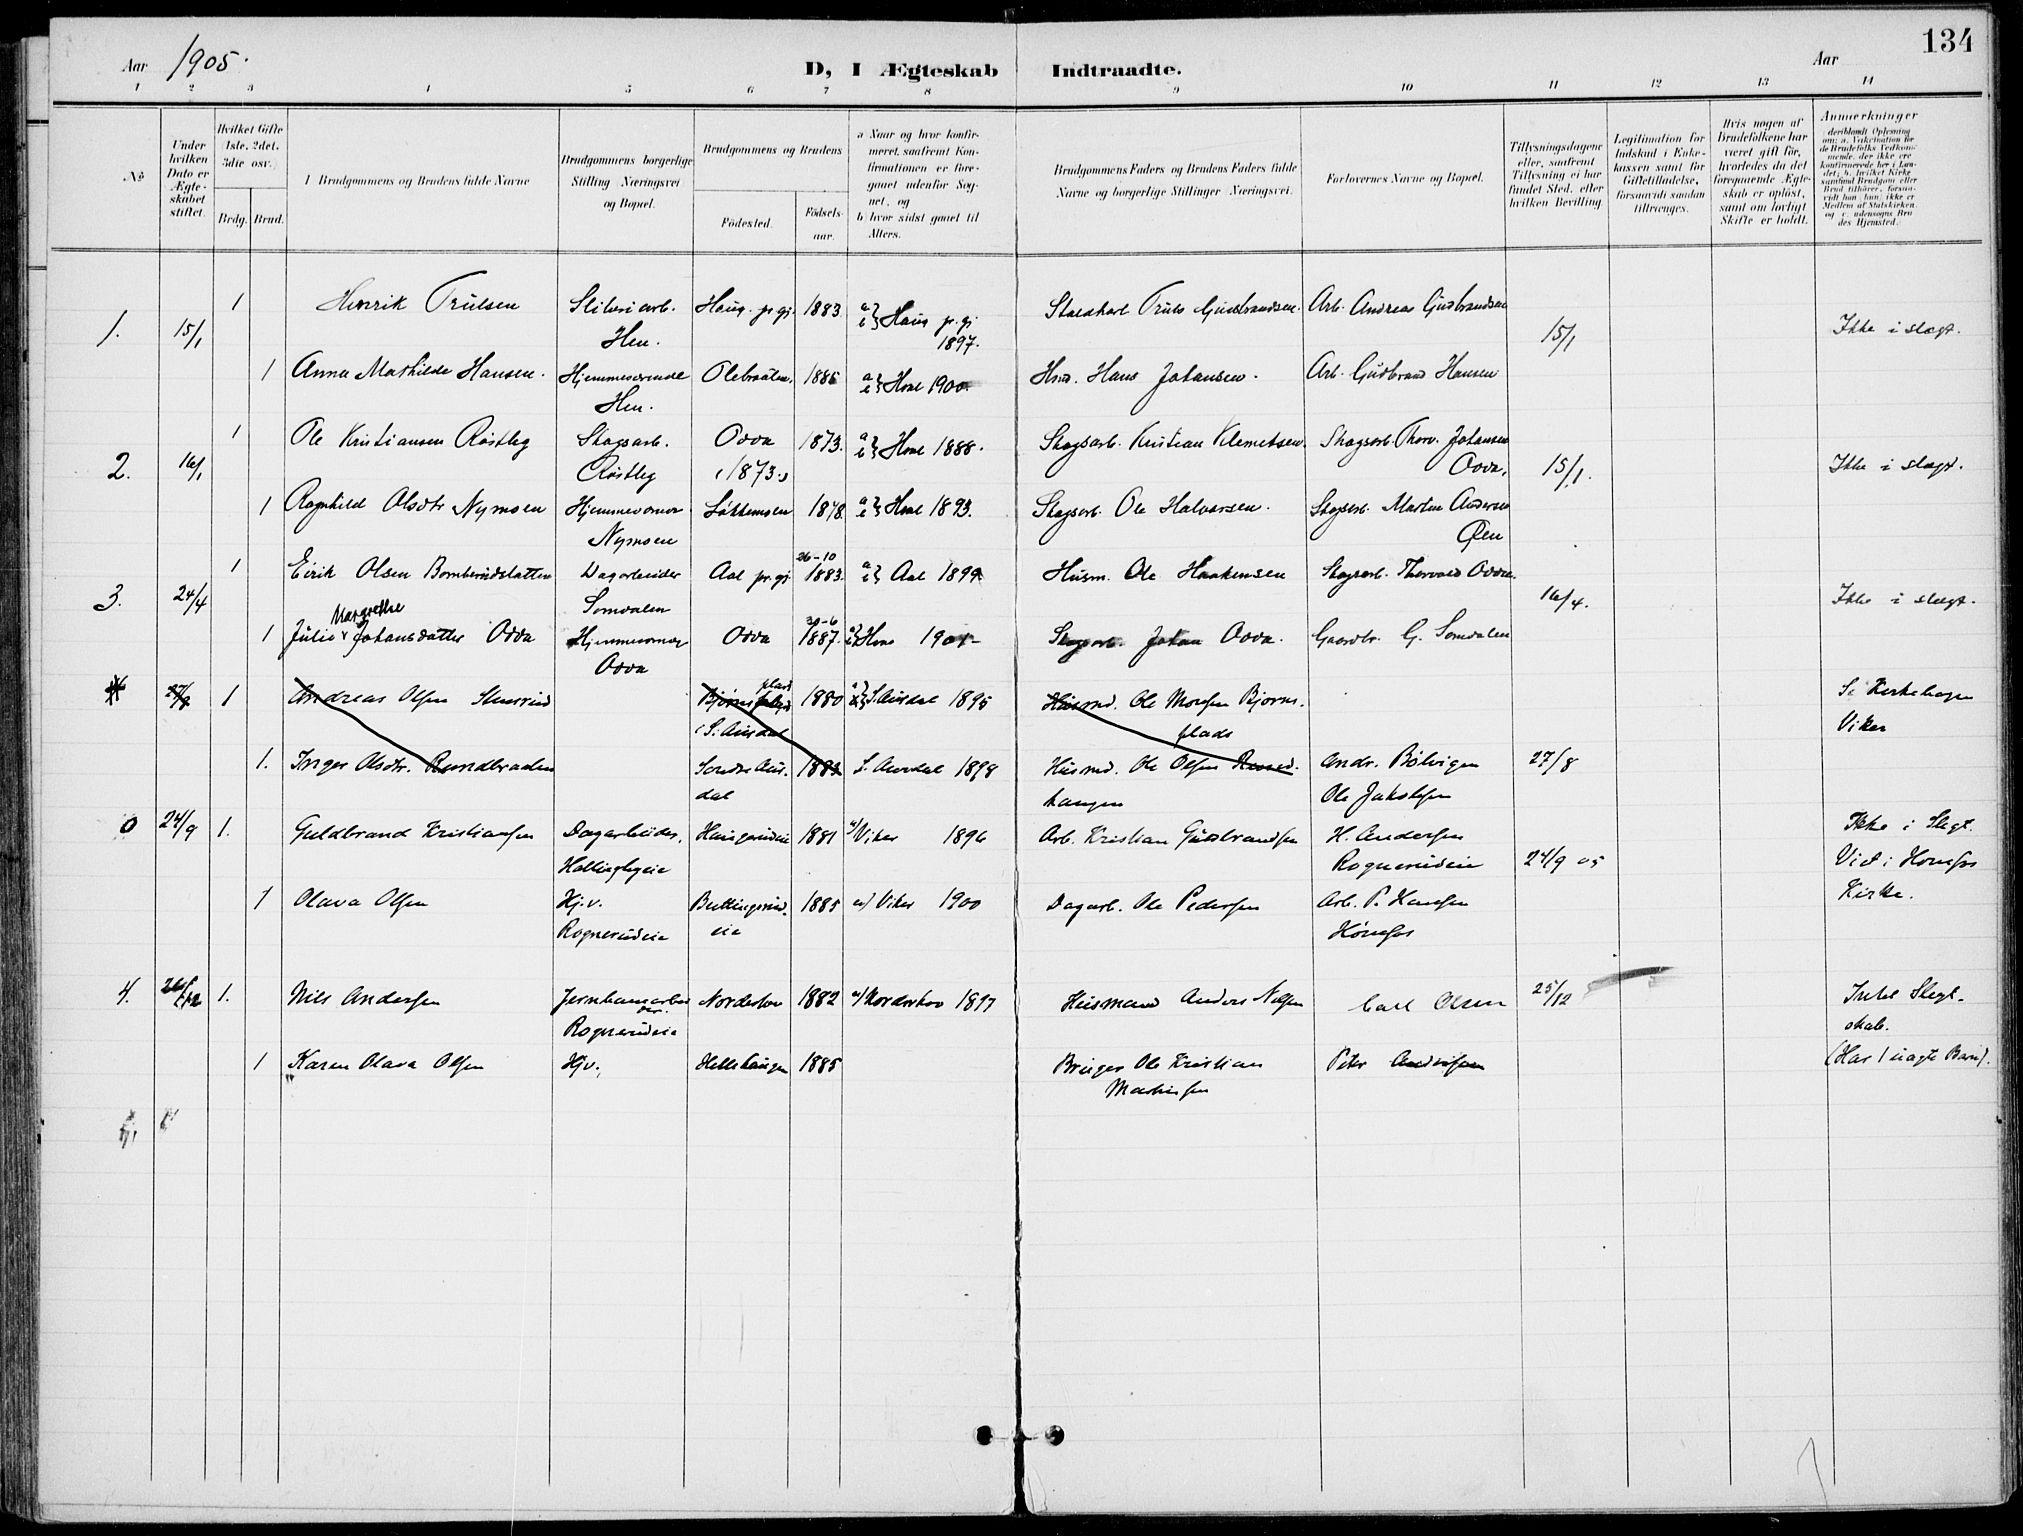 134
Aar 1905. D, I Ægteskab Indtraadte. Aar
1 2 3 4 5 6 7 8 9 10 11 12 13 14
No.
Under hvilken Dato er Ægteskabet stiftet.
Hvilket Gifte 1ste. 2det. 3die osv.
Brdg. Brud.
Brudgommens og Brudens fulde Navne
Brudgommens borgerlige Stilling Næringsvei og Bopæl.
Brudgommens og Brudens
Fødested.
Fødselsaar.
a Naar og hvor konfirmeret, saafremt Konfirmationen er foregaaet udenfor Sognet, og
b hvor sidst gaaet til Alters.
Brudgommens Faders og Brudens Faders fulde Navne og borgerlige Stillinger Næringsvei.
Forlovernes Navne og Bopæl.
Tillysningsdagene eller, saafremt Tillysning ei har fundet Sted, efter hvilken Bevilling.
Legitimation for Indskud i Enkekassen samt for Giftetilladelse, forsaavidt saadan tiltrænges.
Hvis nogen af Brudefolkene har været gift før, hvorledes da det foregaaende Ægteskab er opløst, samt om lovligt Skifte er holdt.
Anmerkninger
1. 15/1 1 Henrik Trulsen Sliberiarb. Hen. Haug pr.gj. 1883 a} b} Haug pr.gj. 1897. Staldkarl Truls Gudbrandsen. Arb. Andreas Gudbrandsen 15/1 Ikke i slægt.
1 Anna Mathilde Hansen. Hjemmeværende Hen. Olebraaten. 1885 a} b} Hval 1900. Hmd. Hans Johansen. Arb. Gudbrand Hansen
2. 16/1 1 Ole Kristiansen Røstleg Skogsarb. Røstleg Odva (1873.) 1873. a} b} Hval 1888. Skogsarb. Kristian Klemetsen. Skogsarb. Thorv. Johansen Odva. 15/1. Ikke i slægt.
1 Ragnhild Olsdtr Nymoen Hjemmeværnde Nymoen Løkkemoen 1878. a} b} Hval 1893. Skogsarb. Ole Halvorsen. Skogsarb. Martin Andersen Øen
3. 24/4 1 Eirik Olsen Dagarbeider Somdalen Aal pr.gj. 26-10 1883. a} b} Aal 1899 Husm. Ole Haakensen Skogsarb. Thorvald Odva. 16/4. Ikke i slægt.
1 Julie Margrethe Johansdatter Odva Hjemmeværnde Odva Odva 1887. Hval Skogsarb. Johan Odva. Gaardbr. G. Somdalen
1 Andreas Olsen Bjørnsplads i S. Aurdal 1880 S. Aurdal 1895 Husmd. Ole Monsen Bjørnsplads Se Kirkebogen Viker
1. Inger Olsdtr. Rundbraaten Søndre Aurdal 1883 S. Aurdal 1898 Husmd. Ole Olsen haugen Andr. Bølvigen Ole Jakobsen 27/8
0 24/9 1. Guldbrand Kristiansen Dagarbeider. Hallingbyeie Haugerudeie 1881 a) Viker 1896 Arb. Kristian Gudbrandsen H. Andersen Rognerudeie 24/9 05 Ikke i Slegt. Viet i Hønefos Kirke.
1 Olava Olsen Hj.v. Rognerudeie Buttingsrudeie 1885 a) Viker 1900 Dagarb. Ole Pedersen Arb. P. Hansen Hønefos
4. 26/12 1. Nils Andersen Rognerudeie Norderhov 1882 a) Norderhov 1897 Husmand Anders Nilsen Carl Olsen 25/12 Intet Slegtskab.
1 Karen Olava Olsen Hjv. Hellehaugen 1885 Bruger Ole Kristian Mathisen Peter Andersen (Har 1 uægte Barn).